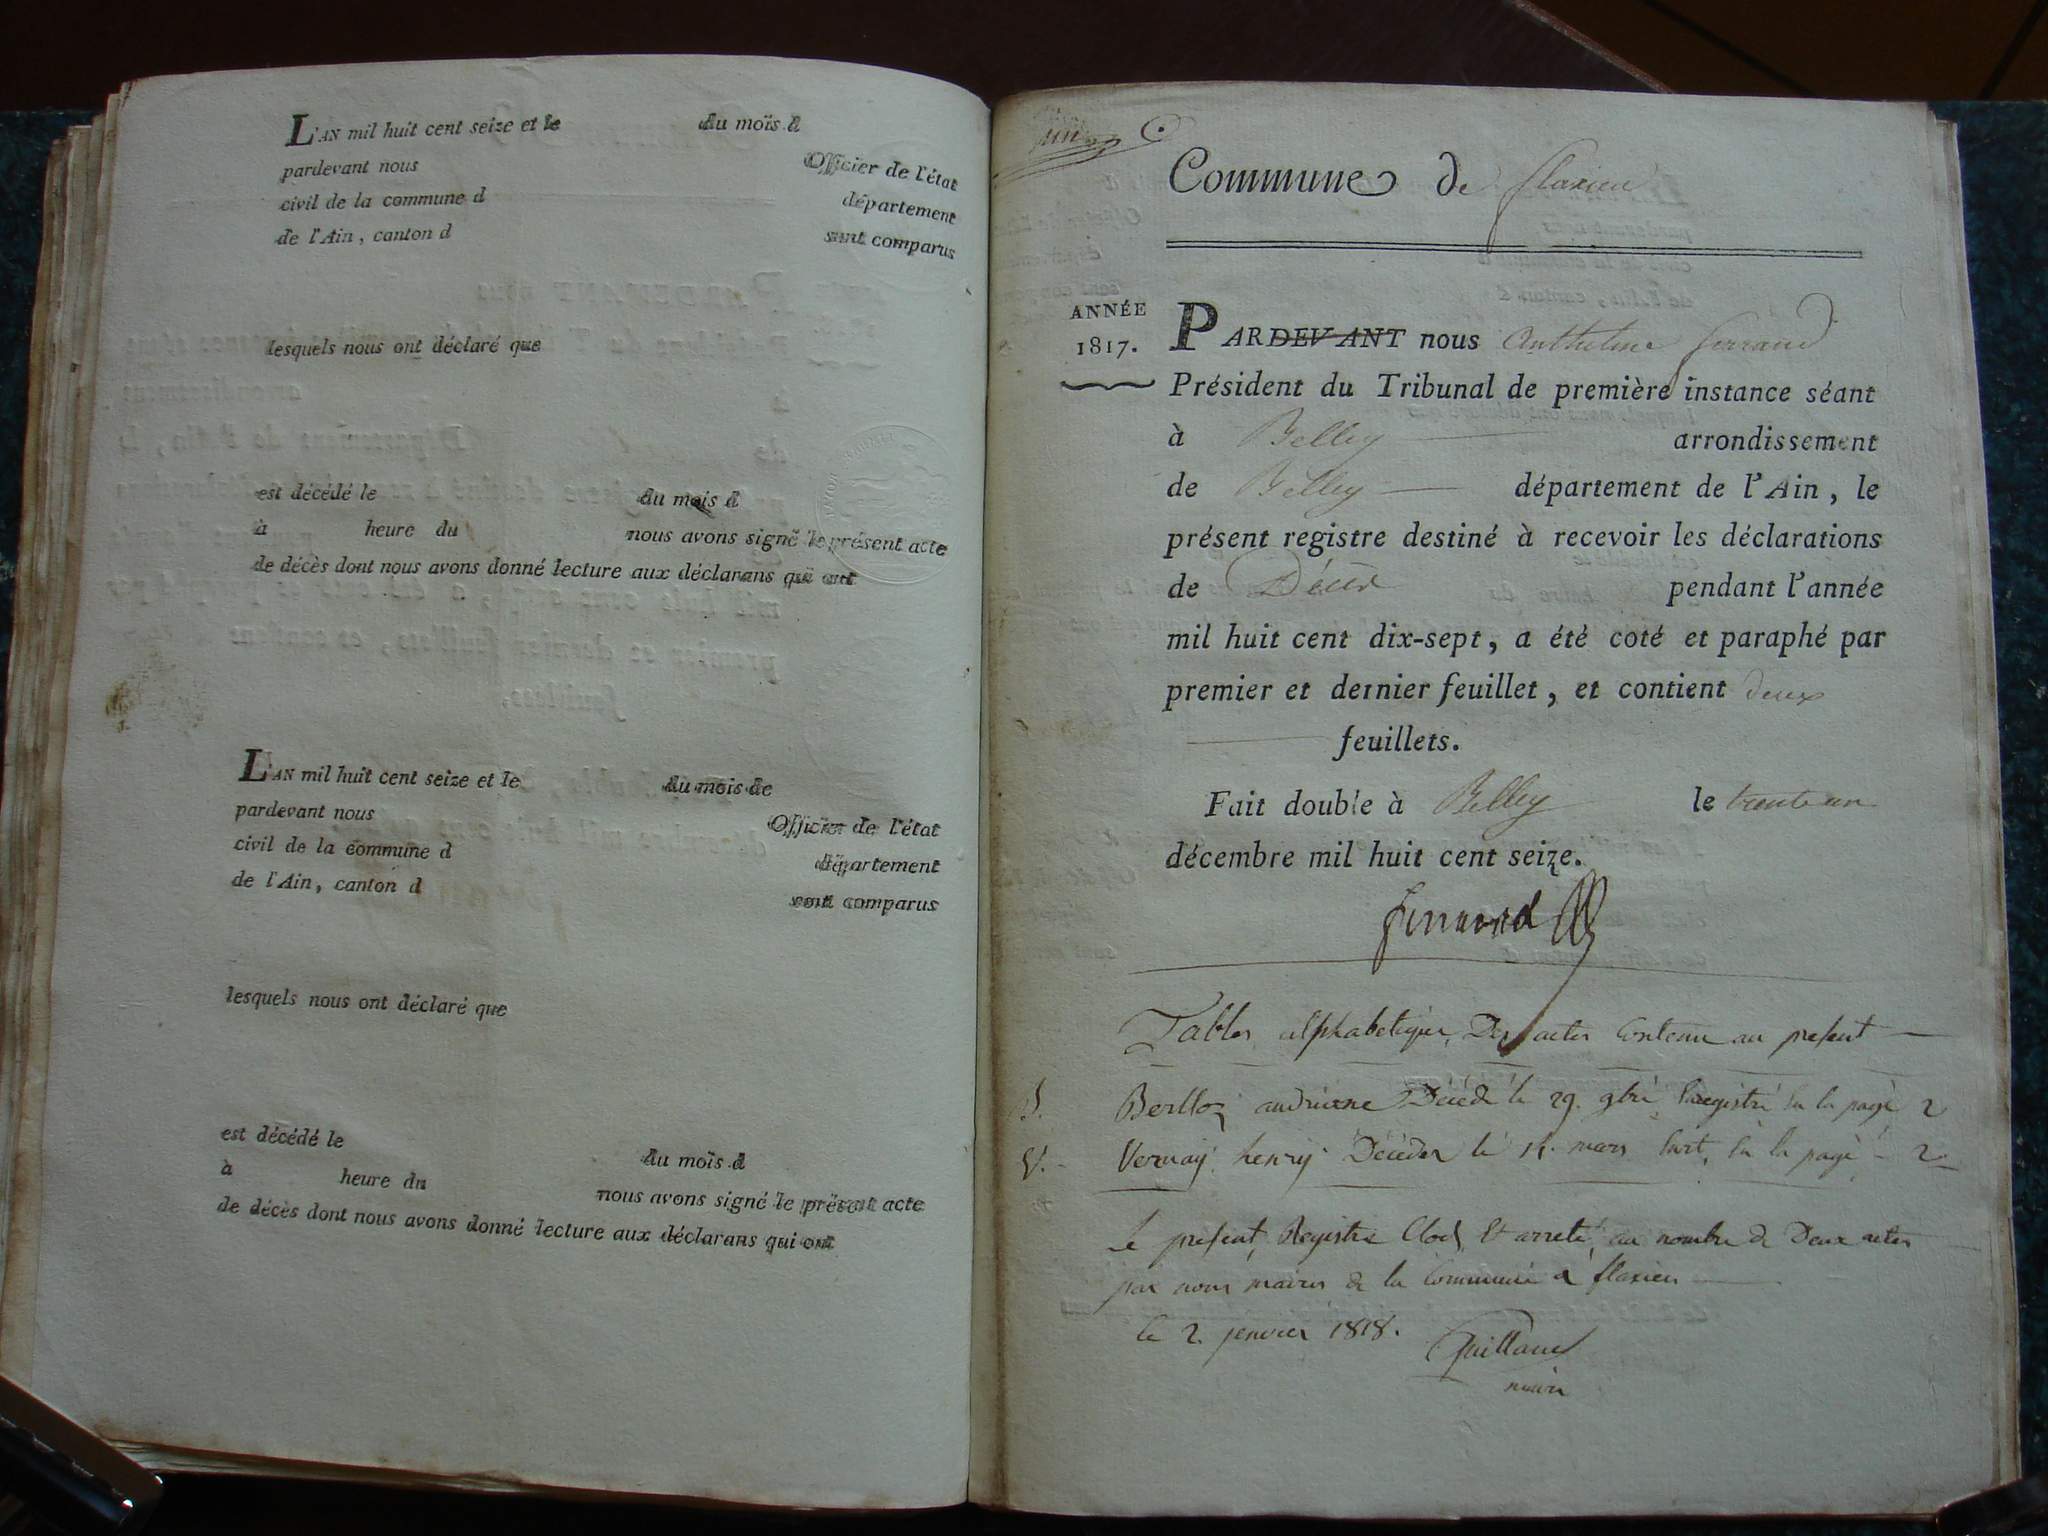 L'AN mil huit cent seize et le du mois d
pardevant nous Officier de l'état
civil de la commune d département
de l'Ain, canton d sont comparus
lesquels nous ont déclaré que
est décédé le du mois d
à heure du nous avons signé le présent acte
de décès dont nous avons donné lecture aux déclarans qui ont
L'AN mil huit cent seize et le du mois de
pardevant nous Officier de l'état
civil de la commune d département
de l'Ain, canton d sont comparus
lesquels nous ont déclaré que
est décédé le du mois d
à heure du nous avons signé le présent acte
de décès dont nous avons donné lecture aux déclarans qui ont
un
Commune de flaxieu
ANNÉE
1817.
PARDEVANT nous Anthelme ferrand
Président du Tribunal de première instance séant
à Belley arrondissement
de Belley département de l'Ain, le
présent registre destiné à recevoir les déclarations
de Décès pendant l'année
mil huit cent dix-sept, a été coté et paraphé par
premier et dernier feuillet, et contient deux
feuillets.
Fait double à Belley le trente un
décembre mil huit cent seize.
ferrand
Tables alphabetique Des actes Contenu au present
B. andrienne Décédé le 29. 9bre Enregistré Su la page 2
V. Vernay henry Décéder le mars Su la page 2
Le present Registre Clos Et arreté au nombre de Deux actes
par nous maires de la Commune de flaxieu
le 2. janvier 1818.
maire